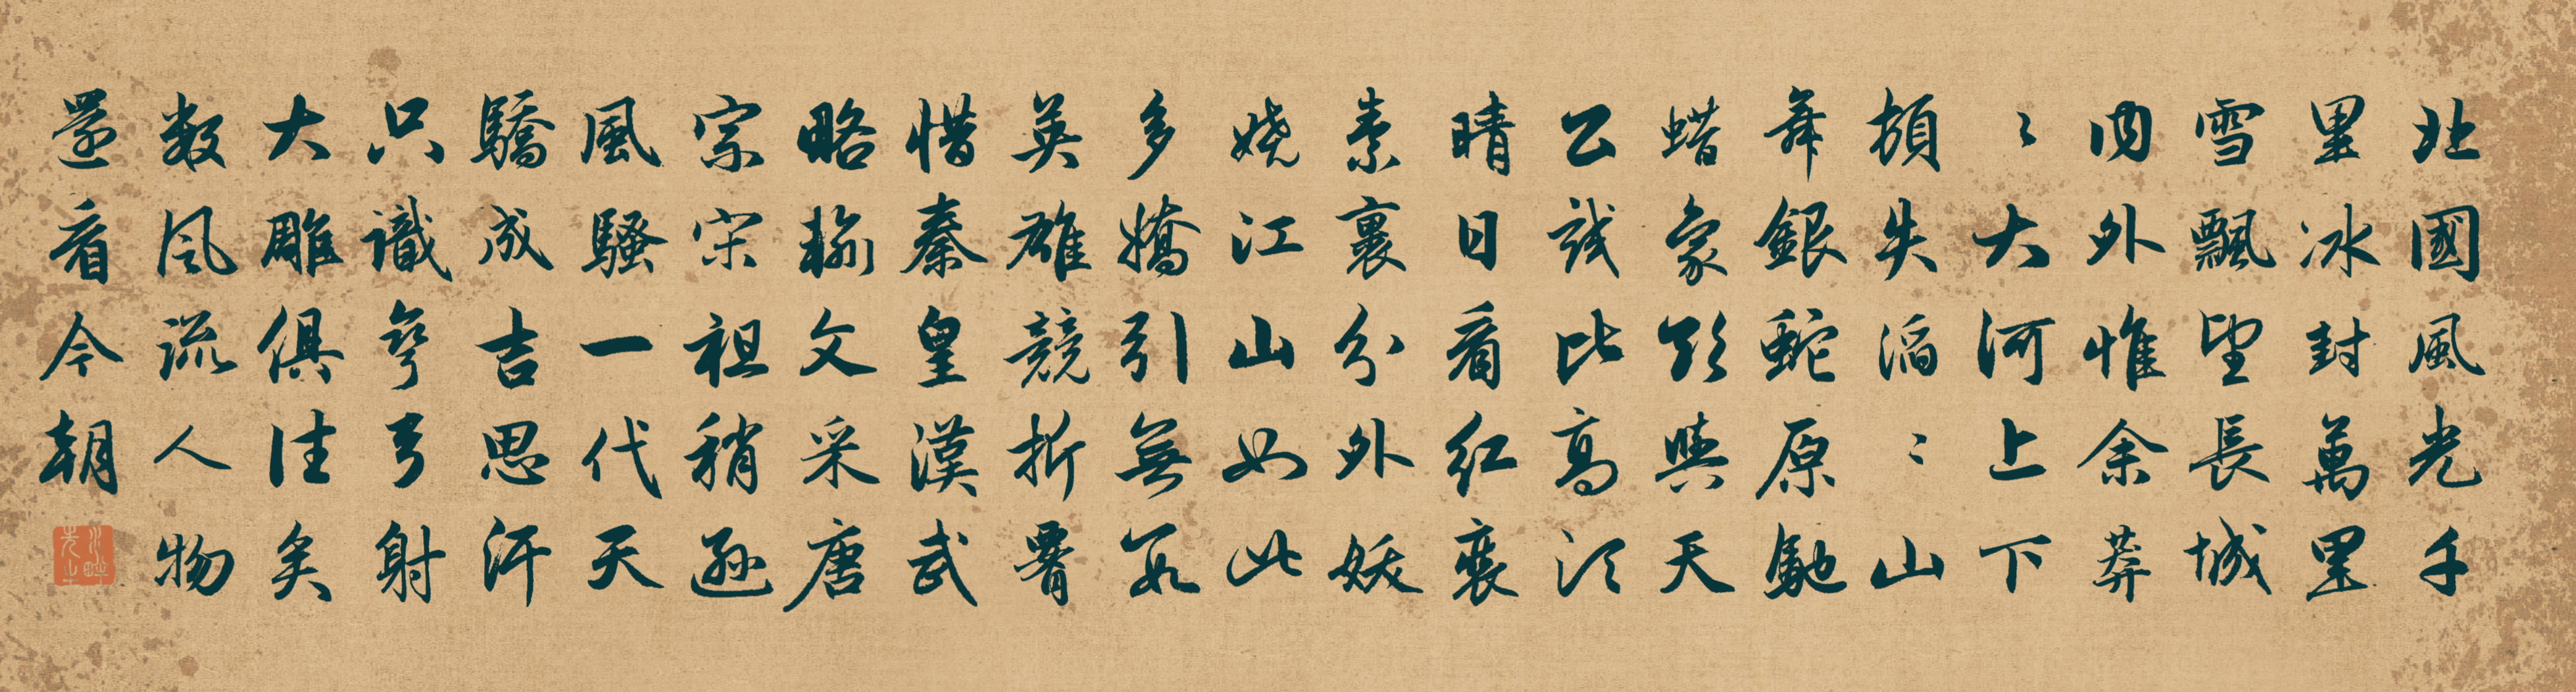 北國風光千
里冰封萬里
雪飄望長城
內外惟余莽
〻大河上下
頓失滔〻山
舞銀蛇原馳
蜡象欲與天
公試比高須
晴日看紅裝
素裹分外妖
嬈江山如此
多嬌引無數
英雄競折腰
惜秦皇漢武
略輸文采唐
宗宋祖稍遜
風騷一代天
驕成吉思汗
只識彎弓射
大雕俱往矣
数風流人物
還看今朝